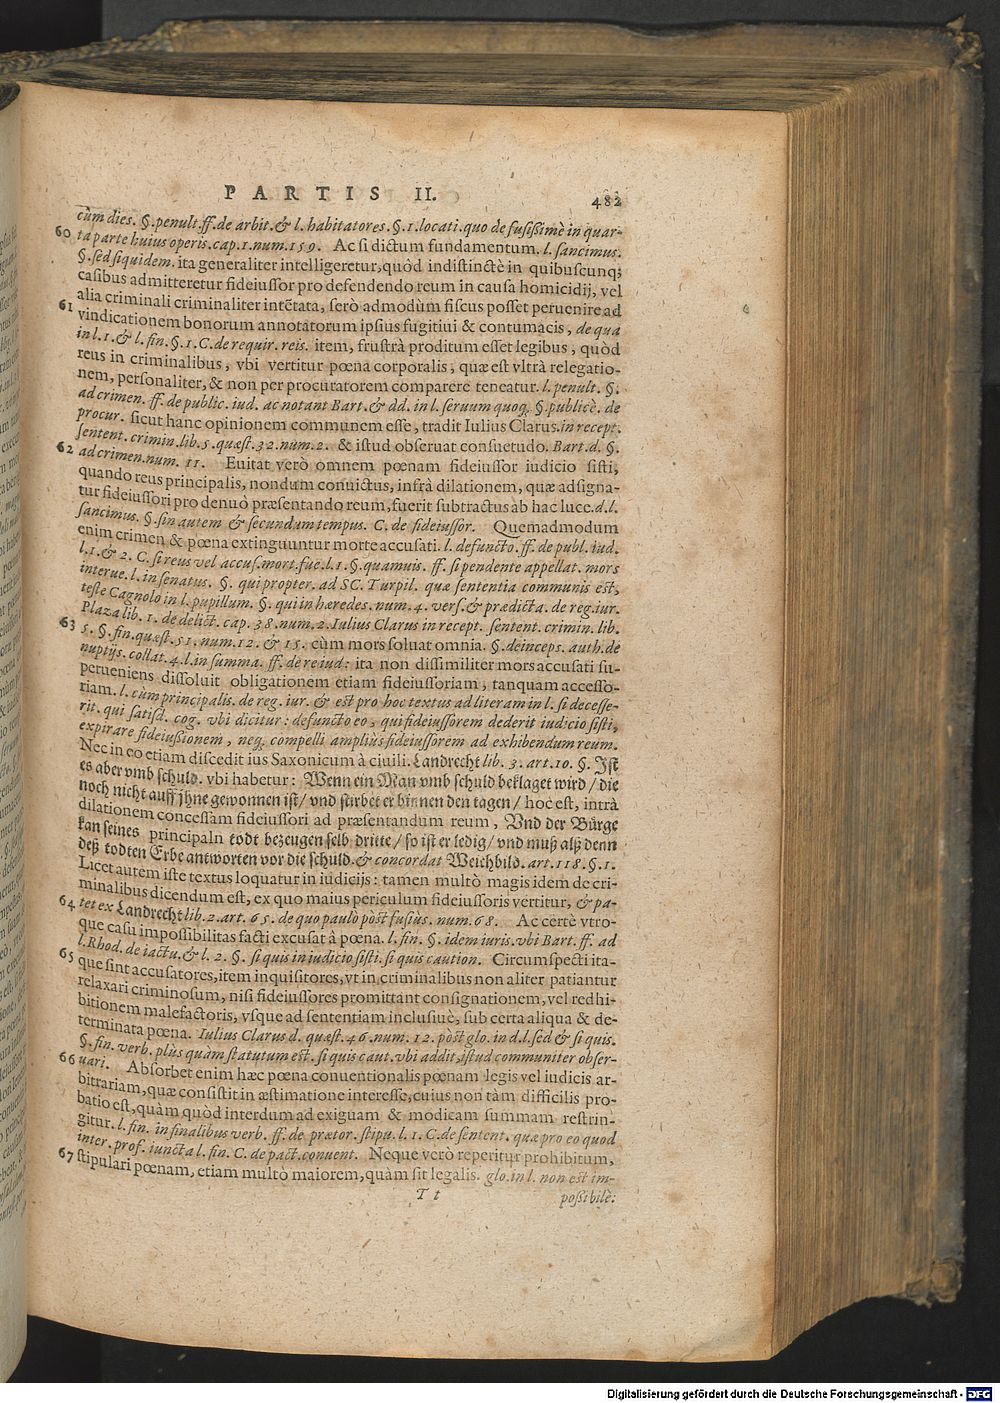 PARTIS II. 482
cùm dies. §. penult. ff. de arbit. & l. habitatores. §. 1. locati. quo de fusissimè in quar-
60 ta parte huius operis. cap. 1. num. 159. Ac si dictum fundamentum. l. sancimus.
§. sed siquidem. ita generaliter intelligeretur, quòd indistinctè in quibuscunq;
casibus admitteretur fideiussor pro defendendo reum in causa homicidij, vel
alia criminali criminaliter intẽtata, serò admodùm fiscus posset peruenire ad
61 vindicationem bonorum annotatorum ipsius fugitiui & contumacis, de qua
in l. 1. & l. fin. §. 1. C. de requir. reis. item, frustrà proditum esset legibus, quòd
reus in criminalibus, vbi vertitur pœna corporalis, quæ est vltrà relegatio-
nem, personaliter, & non per procuratorem comparere teneatur. l. penult. §.
ad crimen. ff. de public. iud. ac notant Bart. & dd. in l. seruum quoq. §. publicè. de
procur. sicut hanc opinionem communem esse, tradit Iulius Clarus. in recept.
sentent. crimin. lib. 5. quæst. 32. num. 2. & istud obseruat consuetudo. Bart. d. §.
62 ad crimen. num. 11. Euitat verò omnem pœnam fideiussor iudicio sisti,
quando reus principalis, nondum conuictus, infrà dilationem, quæ adsigna-
tur fideiussori pro denuò præsentando reum, fuerit subtractus ab hac luce. d. l.
sancimus. §. sin autem & secundum tempus. C. de fideiussor. Quemadmodum
enim crimen & pœna extinguuntur morte accusati. l. defuncto. ff. de publ. iud.
l. 1. & 2. C. si reus vel accus. mort. fue. l. 1. §. quamuis. ff. si pendente appellat. mors
interue. l. in senatus. §. qui propter. ad SC. Turpil. quæ sententia communis est,
teste Cagnolo in l. pupillum. §. qui in hæredes. num. 4. vers. & prædicta. de reg. iur.
Plaza lib. 1. de delict. cap. 38. num. 2. Iulius Clarus in recept. sentent. crimin. lib.
63 5. §. fin. quæst. 51. num. 12. & 15. cùm mors soluat omnia. §. deinceps. auth. de
nuptijs. collat. 4. l. in summa. ff. de re iud: ita non dissimiliter mors accusati su-
perueniens dissoluit obligationem etiam fideiussoriam, tanquam accesso-
riam. l. cùm principalis. de reg. iur. & est pro hoc textus ad literam in l. si decesse-
rit. qui satisd. cog. vbi dicitur: defuncto eo, qui fideiussorem dederit iudicio sisti,
expirare fideiussionem, neq. compelli ampliùs fideiussorem ad exhibendum reum.
Nec in eo etiam discedit ius Saxonicum à ciuili. Landrecht lib. 3. art. 10. §. Ist
es aber vmb schuld. vbi habetur: Wenn ein Man vmb schuld beklaget wird / die
noch nicht auff jhne gewonnen ist / vnd stirbet er binnen den tagen / hoc est, intrà
dilationem concessam fideiussori ad præsentandum reum, Vnd der Bürge
kan seines principaln todt bezeugen selb dritte / so ist er ledig / vnd muß alß denn
deß todten Erbe antworten vor die schuld. & concordat Weichbild. art. 118. §. 1.
Licet autem iste textus loquatur in iudicijs: tamen multò magis idem de cri-
minalibus dicendum est, ex quo maius periculum fideiussoris vertitur, & pa-
64 tet ex Landrecht lib. 2. art. 65. de quo paulò pòst fusiùs. num. 68. Ac certè vtro-
que casu impossibilitas facti excusat à pœna. l. fin. §. idem iuris. vbi Bart. ff. ad
l. Rhod. de iactu. & l. 2. §. si quis in iudicio sisti. si quis caution. Circumspecti ita-
65 que sint accusatores, item inquisitores, vt in criminalibus non aliter patiantur
relaxari criminosum, nisi fideiussores promittant consignationem, vel redhi-
bitionem malefactoris, vsque ad sententiam inclusiuè, sub certa aliqua & de-
terminata pœna. Iulius Clarus d. quæst. 46. num. 12. pòst glo. in d. l. sed & si quis.
§. fin. verb. plùs quàm statutum est. si quis caut. vbi addit, istud communiter obser-
66 uari. Absorbet enim hæc pœna conuentionalis pœnam legis vel iudicis ar-
bitrariam, quæ consistit in æstimatione interesse, cuius non tàm difficilis pro-
batio est, quàm quòd interdum ad exiguam & modicam summam restrin-
gitur. l. fin. in finalibus verb. ff. de prætor. stipu. l. 1. C. de sentent. quæ pro eo quod
inter. prof. iuncta l. fin. C. de pact. conuent. Neque verò reperitur prohibitum,
67 stipulari pœnam, etiam multò maiorem, quàm sit legalis. glo. in l. non est im-
T t possibile:
Digitalisierung gefördert durch die Deutsche Forschungsgemeinschaft - DFG